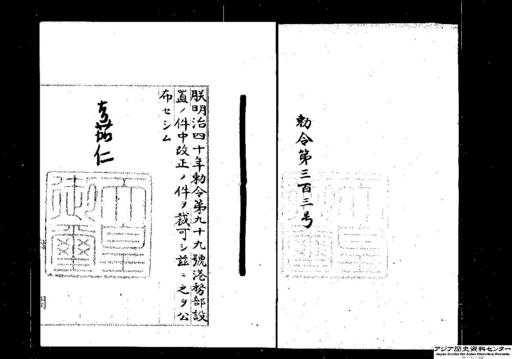 勅令第三百三号
朕明治四十年勅令第九十九號港務部設
置ノ件中改正ノ件ヲ裁可シ茲ニ之ヲ公
布セシム
嘉仁
天皇
御璽
アジア歴史資料センター
Japan Center for Asian Historical Records